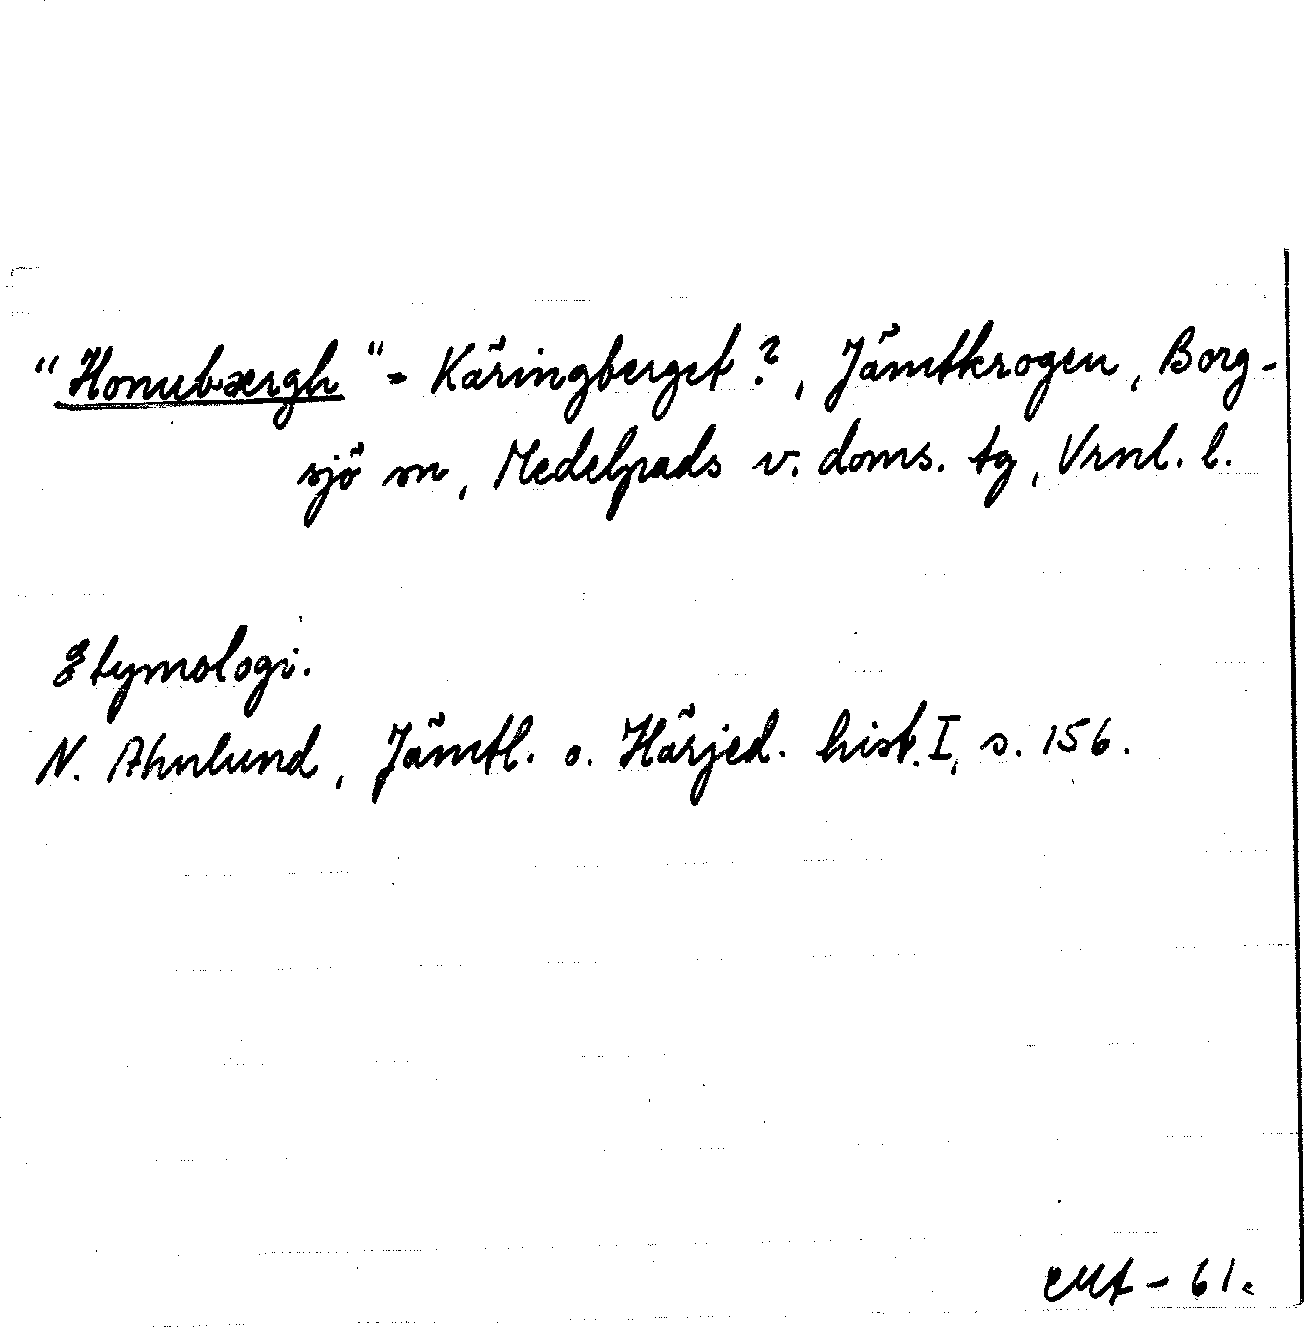 "Honubærgh" = Käringberget?, Jämtkrogen, Borg-
sjö sn, Medelpads v. doms. tg, Vrnl. l.
Etymologi.
N. Ahnlund, Jämtl. o. Härjed. hist. I, s. 156.
- 61.